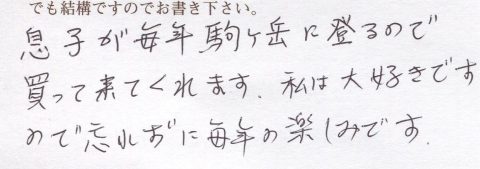 でも結構ですのでお書き下さい。
息子が毎年駒ヶ岳に登るので
買って来てくれます。私は大好きです
ので忘れずに毎年の楽しみです。